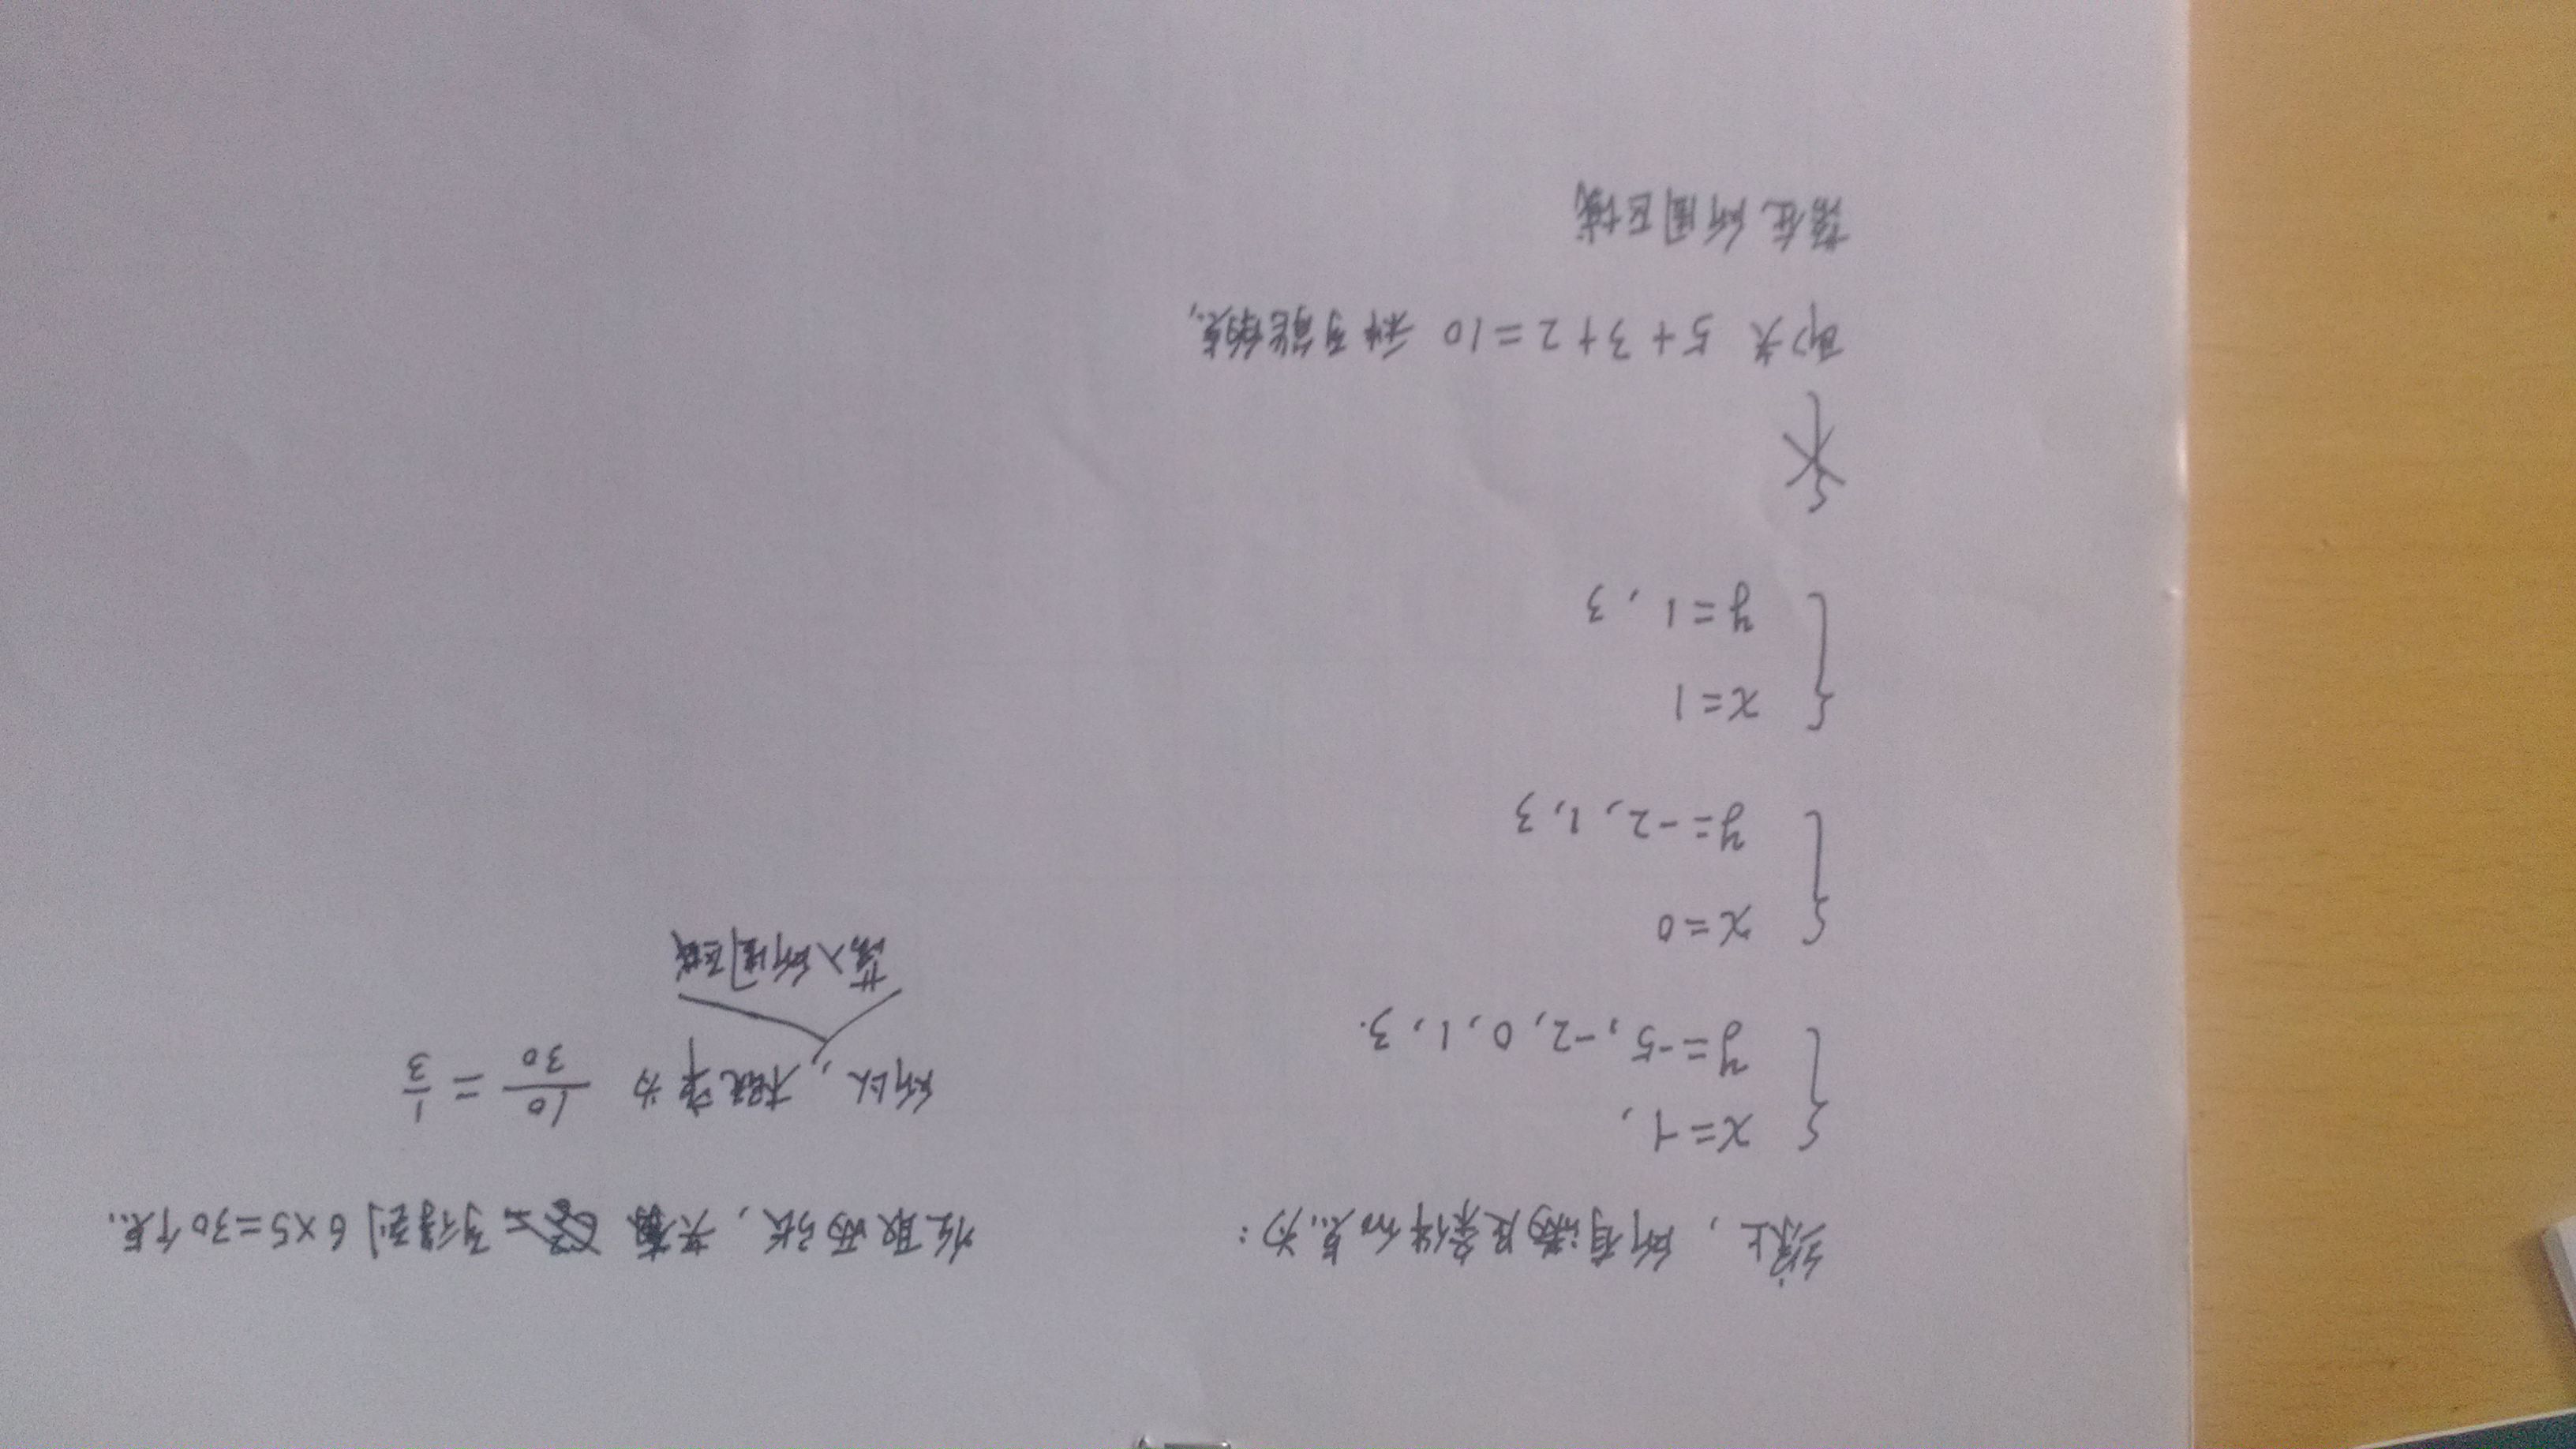 综上，所有满足条件的点为：
{ x=-1，
y=-5，-2，0，1，3.
{ x=0
y=-2，1，3
{ x=1
y=1，3
即共 5+3+2=10 种可能的点，
落在所围区域
任取两张，共 可得到 6×5=30个点.
所以，概率为 10/30 = 1/3
落入所围区域